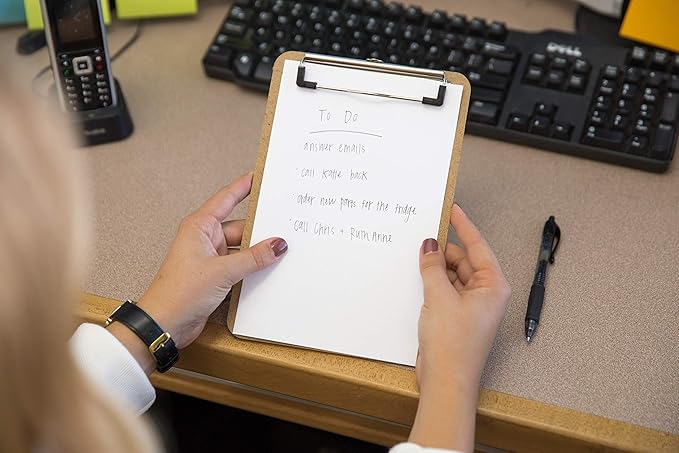 DELL
To Do
answer emails
· call Katie back
order new parts for the fridge
· call Chris + Ruth Anne